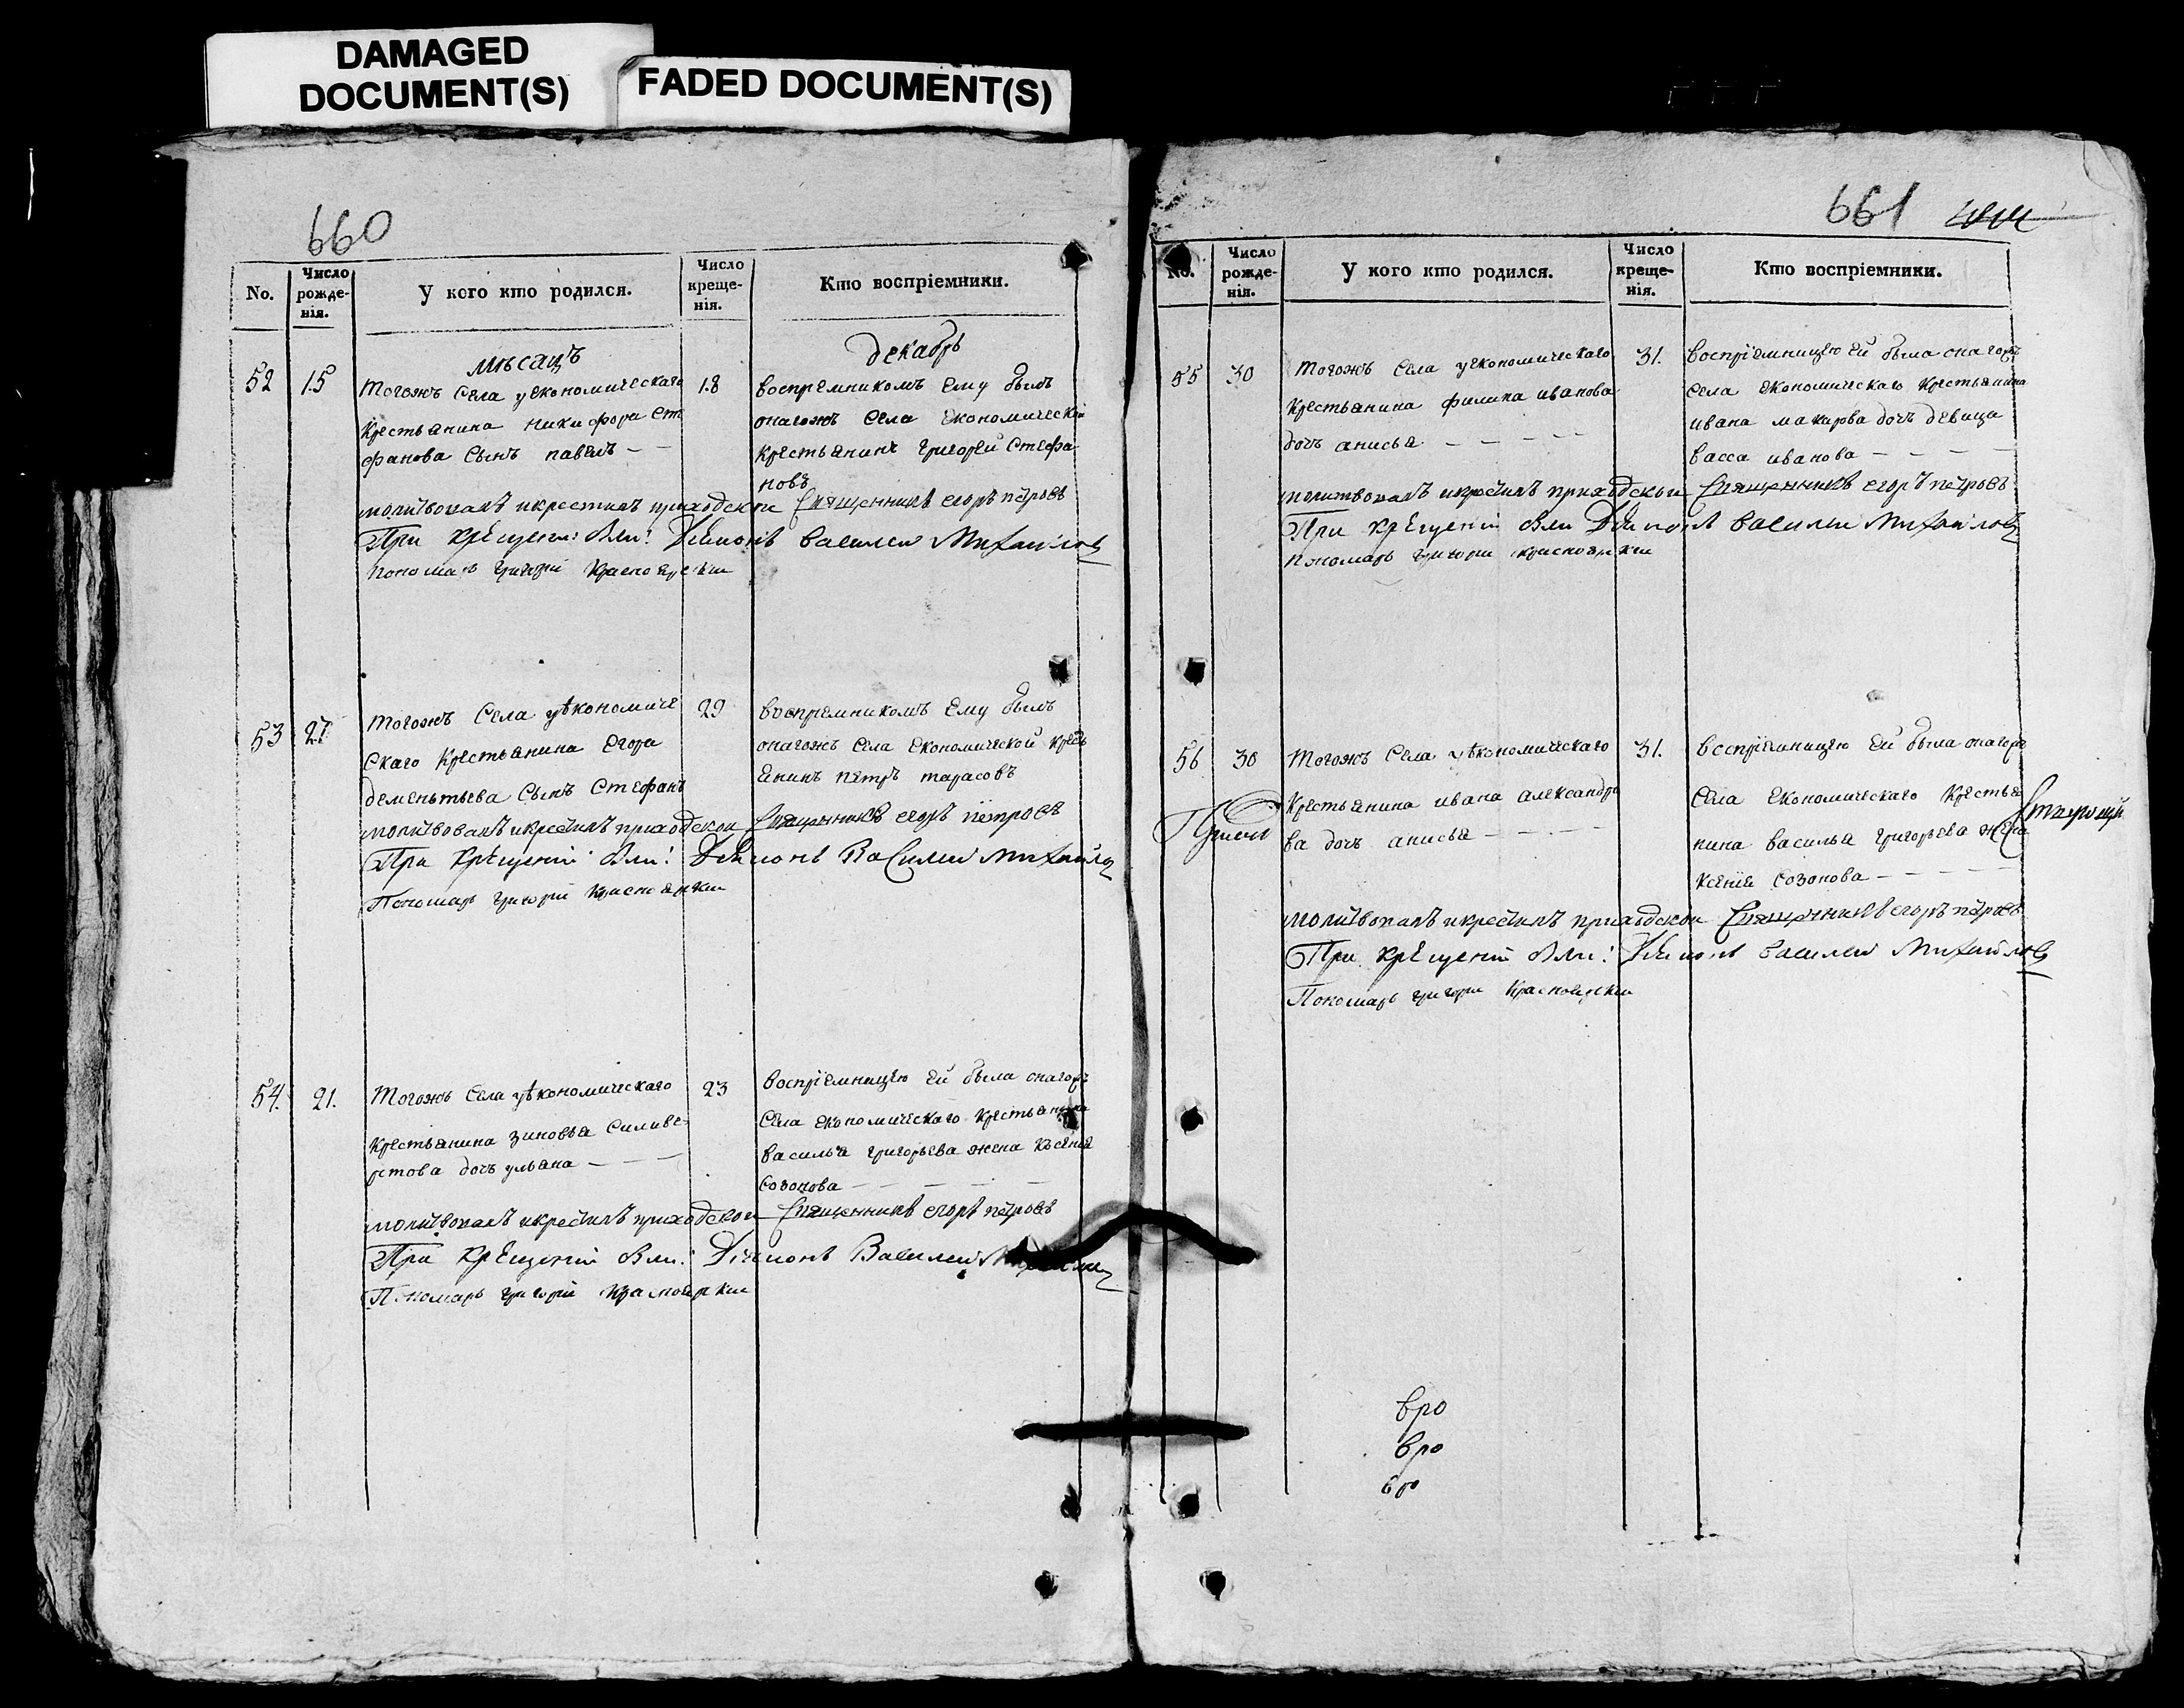 DAMAGED
DOCUMENT(S)
FADED DOCUMENT(S)
660
No.
Число
рожде-
нія.
У кого кто родился.
Число
креще-
нія.
Кто воспріемники.
мѣсацъ
декабрь
52
15
тогожъ села уекономическаго
крестьянина никифора сте
фанова сынъ павелъ — —
18
воспремникомъ ему былъ
онагожъ села економической
крестьянинъ григорей стефа
новъ
молитвовалъ икрестилъ приходской священникъ егоръ петровъ
При крещении были: Диаконъ василей Михайловъ
пономарь григорий красноярскии
53
27
тогожъ села уѣкономиче
скаго крестьянина егора
дементьева сынъ стефанъ
29
воспремникомъ ему былъ
онагожъ села економической кресть
янинъ петръ тарасовъ
молитвовалъ икрестилъ приходской священникъ егоръ петровъ
При крещении были: Диаконъ Василей михайловъ
Пономарь григории красноярскии
54.
21.
тогожъ села уѣкономическаго
крестьянина зиновья силиве
рстова дочь ульяна — — —
23
воспріемницею ей была онагожъ
села економическаго крестьянина
василья григорьева жена ксенія
созонова — — — — —
молитвовалъ икрестилъ приходской священникъ егоръ петровъ
При крещении были: Диаконъ Василей
Пономарь григорий красноярскии
661
No.
Число
рожде-
нія.
У кого кто родился.
Число
креще-
нія.
Кто воспріемники.
55
30
тогожъ села уекономическаго
крестьянина филипа иванова
дочь анисья — — — —
31.
воспріемницею ей была онагожъ
села економическаго крестьянина
ивана макарова дочь девица
васса иванова — — — —
молитвовалъ икрестилъ приходской священникъ егоръ петровъ
При крещении были Диаконъ василеи Михайловъ
пономарь григории красноярскии
56
30
тогожъ села уѣкономическаго
крестьянина ивана александро
ва дочь анисья — — — —
31.
воспріемницею ей была онагожъ
села економическаго крестья
нина василья григорьева жена
ксения созонова — — — —
молитвовалъ икрестилъ приходской священникъ егоръ петровъ
При крещении были: Диаконъ василеи Михайловъ
Пономарь григори красноярскии